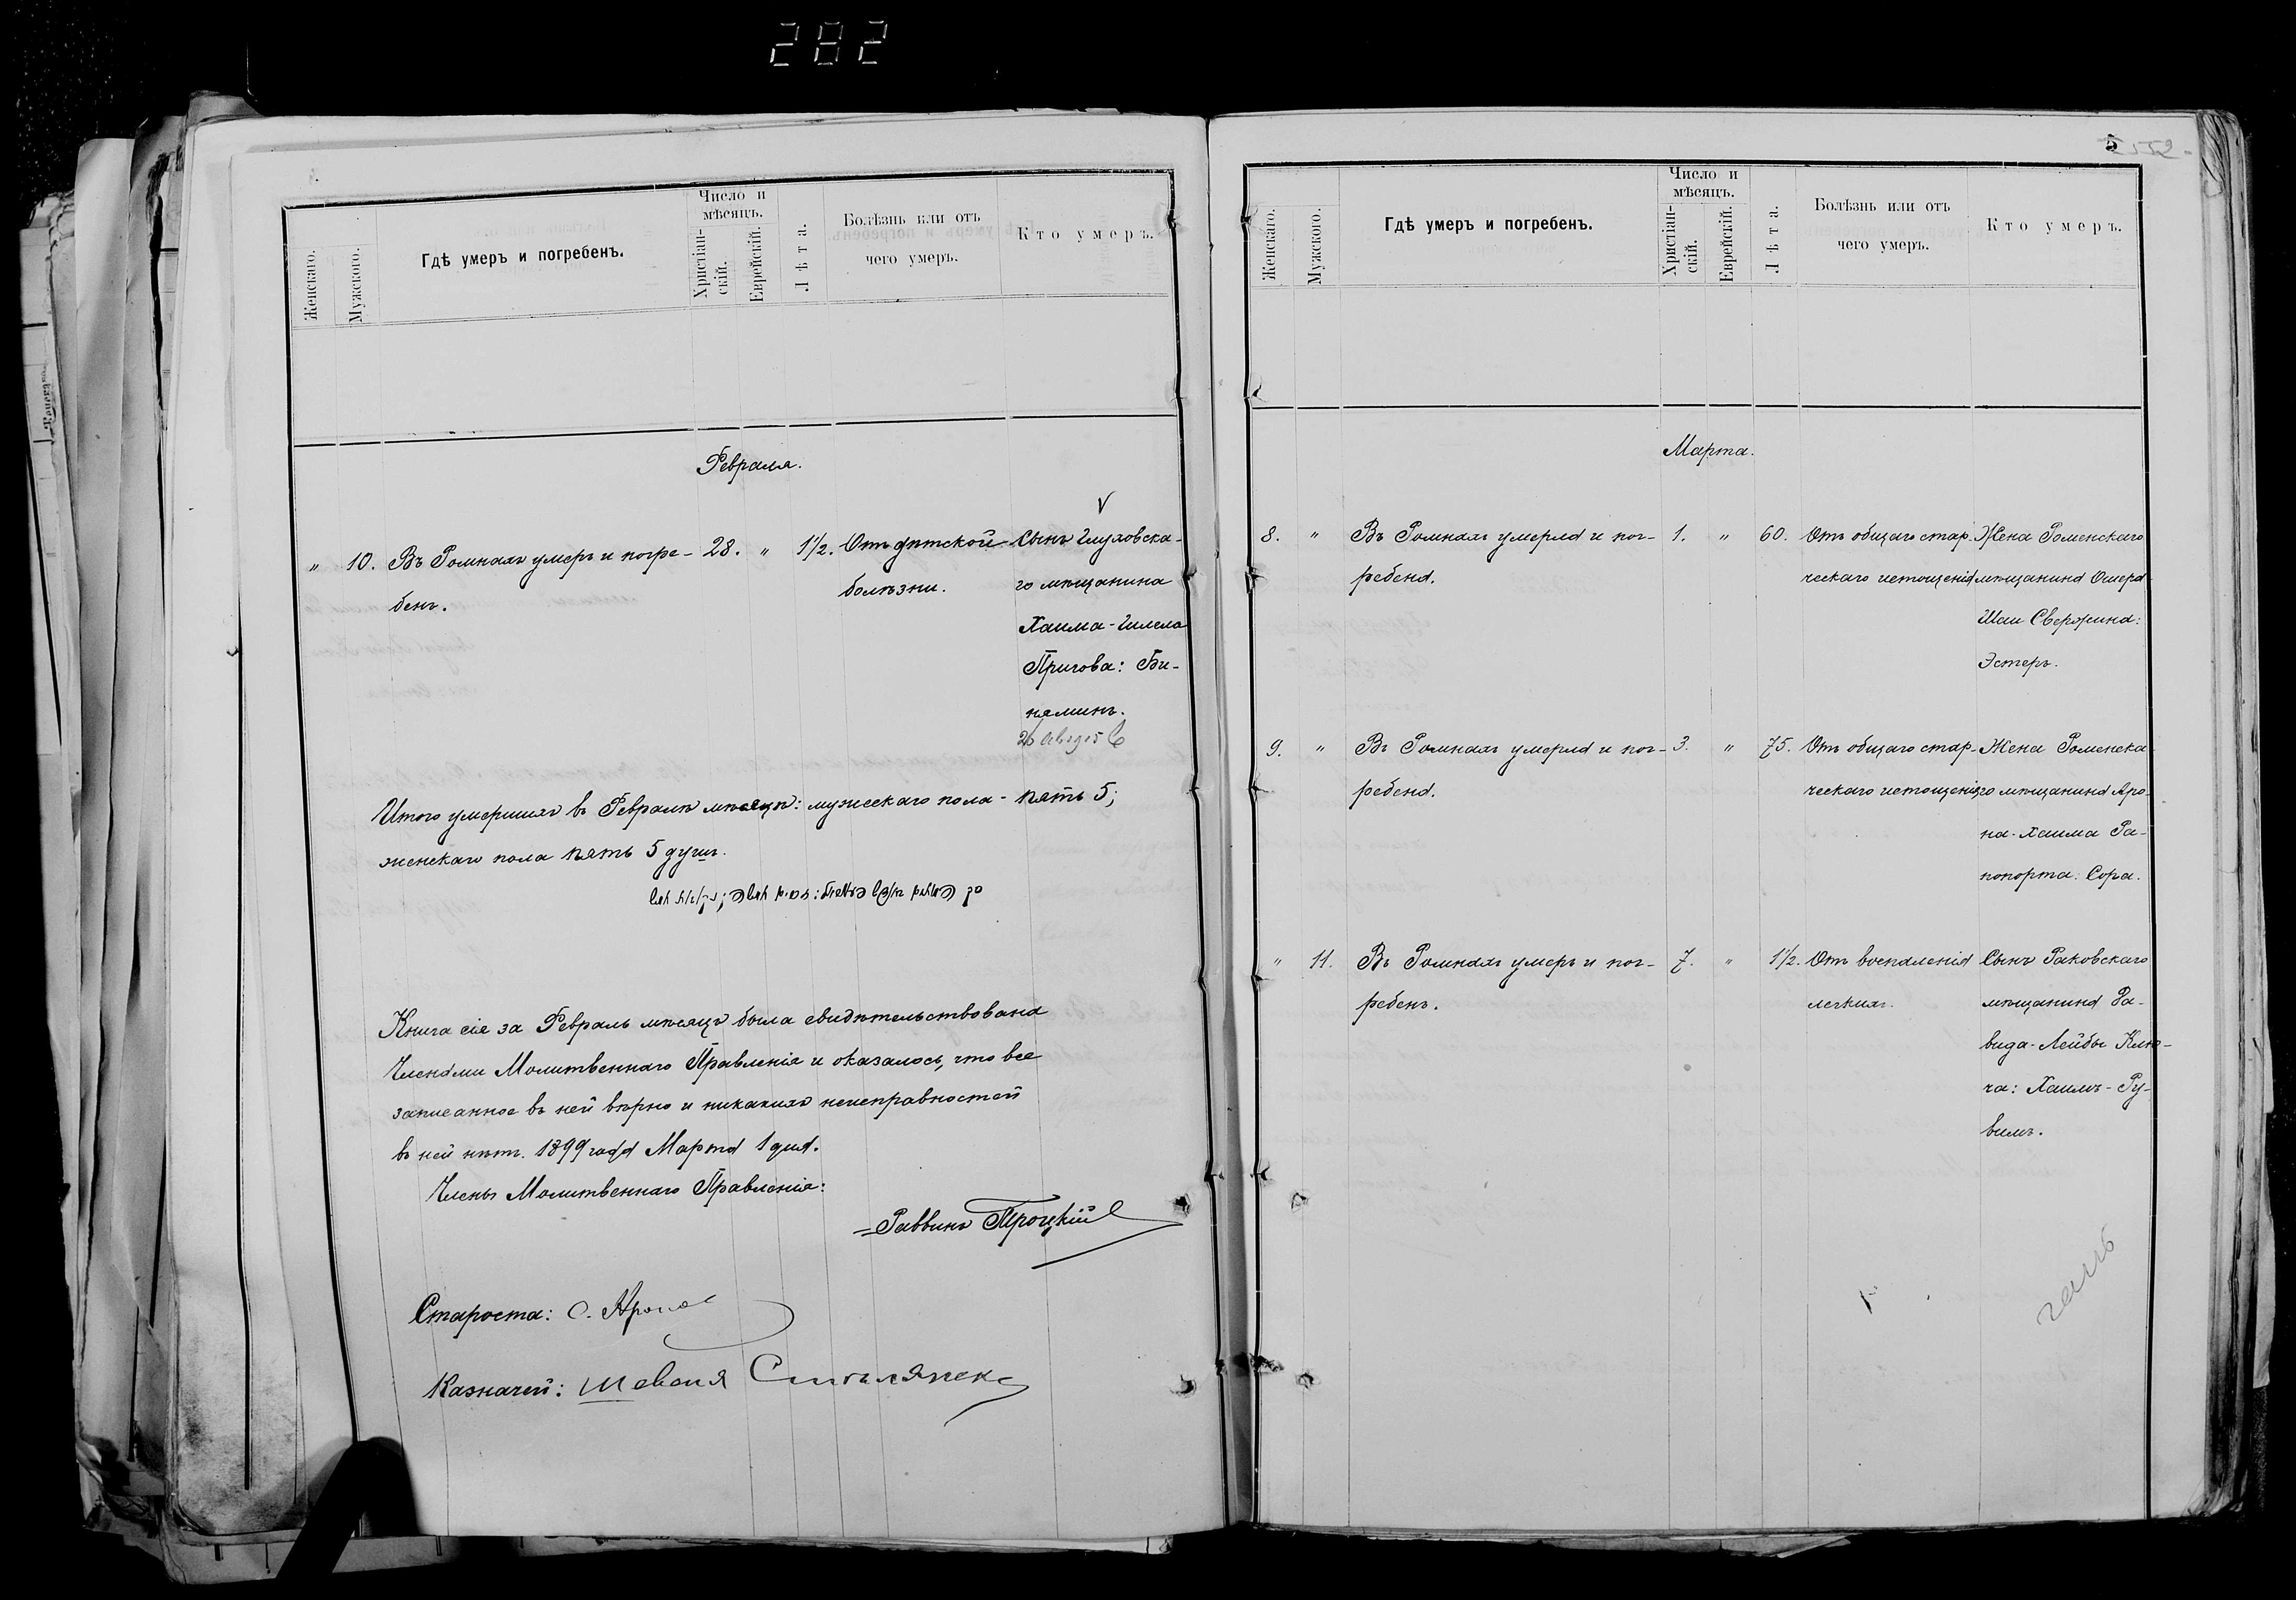 282
Женскаго.
Мужского.
Гдѣ умеръ и погребенъ.
Число и
мѣсяцъ.
Христіан-
скій.
Еврейскій.
Лѣта.
Болѣзнь или отъ
чего умеръ.
Кто умеръ.
Февраля.
" 10. Въ Ромнахъ умеръ и погре- 28. " 1½. Отъ дѣтской Сынъ Глуховска-
бенъ. болѣзни. го мѣщанина
Хаима-Гилела
Пригова: Би-
няминъ.
Итого умершихъ въ Февралѣ мѣсяцѣ: мужескаго пола - пять 5;
женскаго пола пять 5 душъ.
Книга сія за Февраль мѣсяцъ была свидѣтельствована
Членами Молитвеннаго Правленія и оказалось, что все
записанное въ ней вѣрно и никакихъ неисправностей
въ ней нѣтъ. 1899 года Марта 1 дня.
Члены Молитвеннаго Правленія:
Раввинъ Троцкій
Староста: С.
Казначей:
552
Женскаго.
Мужского.
Гдѣ умеръ и погребенъ.
Число и
мѣсяцъ.
Христіан-
скій.
Еврейскій.
Лѣта.
Болѣзнь или отъ
чего умеръ.
Кто умеръ.
Марта.
8. " Въ Ромнахъ умерла и пог- 1. " 60. Отъ общаго стар- Жена Роменскаго
ребена. ческаго истощенія мѣщанина Ошера-
Шаи Свержина:
Эстеръ.
9. " Въ Ромнахъ умерла и пог- 3. " 75. Отъ общаго стар- Жена Роменска-
ребена. ческаго истощенія го мѣщанина Аро-
на-Хаима Ра-
попорта: Сора.
" 11. Въ Ромнахъ умеръ и пог- 7. " 1½. Отъ воспаленія Сынъ Раковскаго
ребенъ. легкихъ. мѣщанина Да-
вида-Лейбы Клю-
ча: Хаимъ-Ру-
вимъ.